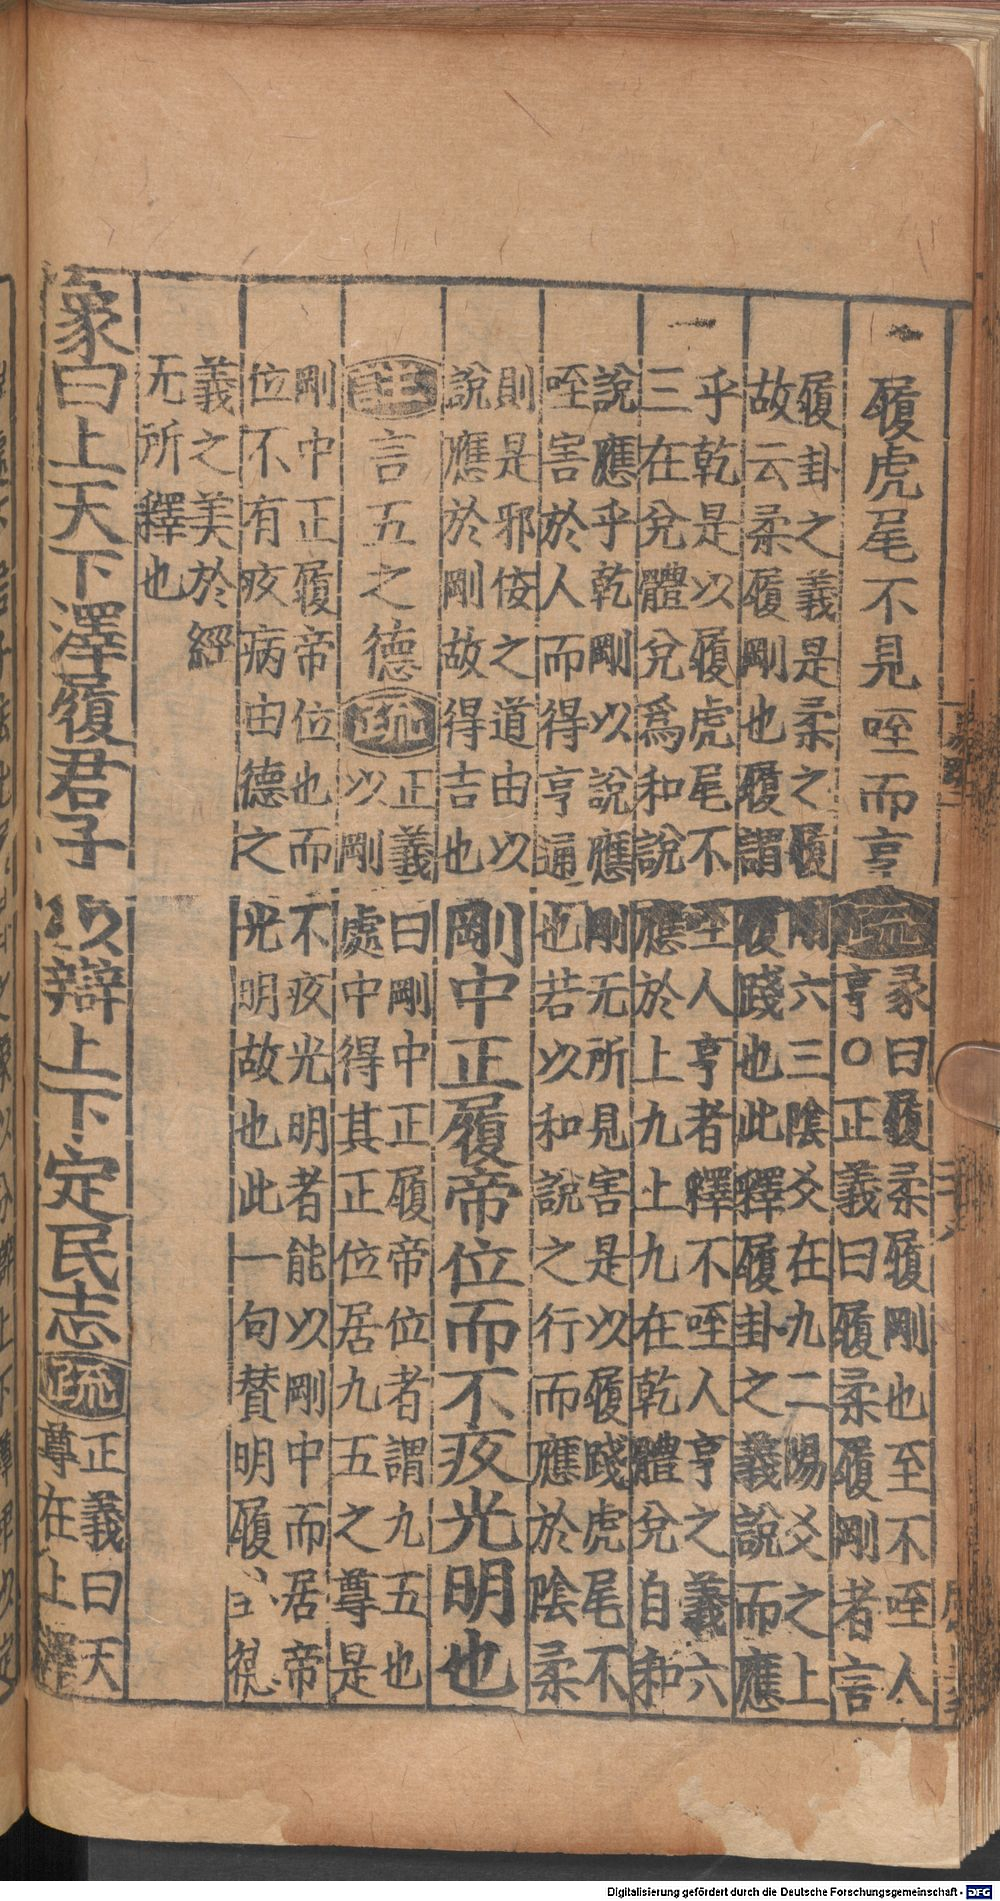 履虎尾不見咥而亨
疏
彖曰履柔履剛也至不咥人
亨○正義曰履柔履剛者言
履卦之義是柔之履剛六三陰爻在九二陽爻之上
故云柔履剛也履謂履踐也此釋履卦之義說而應
乎乾是以履虎尾不咥人亨者釋不咥人亨之義六
三在兌體兌爲和說應於上九上九在乾體兌自和
說應乎乾剛以說應剛无所見害是以履踐虎尾不
咥害於人而得亨通也若以和說之行而應於陰柔
則是邪佞之道由以
說應於剛故得吉也
剛中正履帝位而不疚光明也
註
言五之德
疏
正義曰剛中正履帝位者謂九五也
以剛處中得其正位居九五之尊是
剛中正履帝位也而不疚光明者能以剛中而居帝
位不有疚病由德之光明故也此一句贊明履
義之美於經
无所釋也
象曰上天下澤履君子以辯上下定民志
疏
正義曰天
尊在上澤
Digitalisierung gefördert durch die Deutsche Forschungsgemeinschaft - DFG